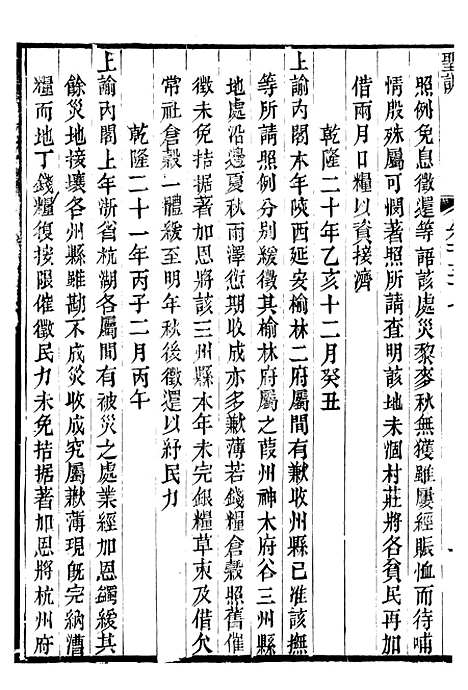 聖訓
照例免息徵還等語該處災黎麥秋無獲雖屢經賑恤而待哺
情殷殊屬可憫著照所請查明該地未涸村莊將各貧民再加
借兩月口糧以資接濟
乾隆二十年乙亥十二月癸丑
上諭內閣本年陝西延安榆林二府屬間有歉收州縣已准該撫
等所請照例分別緩徵其榆林府屬之葭州神木府谷三州縣
地處沿邊夏秋雨澤愆期收成亦多歉薄若錢糧倉穀照舊催
徵未免拮据著加恩將該三州縣本年未完銀糧草束及借欠
常社倉穀一體緩至明年秋後徵還以紓民力
乾隆二十一年丙子二月丙午
上諭內閣上年浙省杭湖各屬間有被災之處業經加恩蠲緩其
餘災地接壤各州縣雖勘不成災收成究屬歉薄現旣完納漕
糧而地丁錢糧復接限催徵民力未免拮据著加恩將杭州府